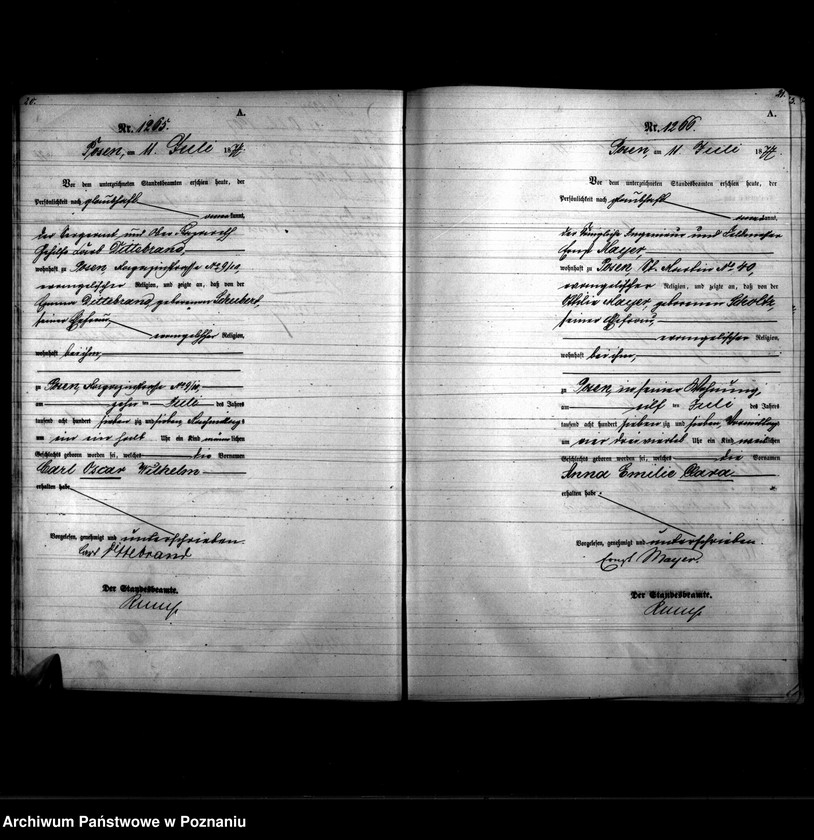 20.
A.
Nr. 1265.
Posen, am 11. Juli 1877.
Vor dem unterzeichneten Standesbeamten erschien heute, der
Persönlichkeit nach glaubhaft
kannt,
der Sergeant und Ober-Lazareth
Gehilfe Carl Dittebrand,
wohnhaft zu Posen, No 9/10,
evangelischer Religion, und zeigte an, daß von der
Emma Dittebrand, geborenen Schubert,
seiner Ehefrau,
evangelischer Religion,
wohnhaft bei ihm,
zu Posen, No 9/10,
am zehn ten Juli des Jahres
tausend acht hundert sieben zig und sieben Nachmittags
um ein ein halb Uhr ein Kind männlichen
Geschlechts geboren worden sei, welches die Vornamen
Carl Oscar Wilhelm
erhalten habe
Vorgelesen, genehmigt und unterschrieben.
Carl Dittebrand
Der Standesbeamte.
21.
A.
Nr. 1266.
Posen, am 11. Juli 1877.
Vor dem unterzeichneten Standesbeamten erschien heute, der
Persönlichkeit nach glaubhaft
kannt,
der Königliche Ingenieur und Feldmesser
Ernst Mayer,
wohnhaft zu Posen, St. Martin No 40,
evangelischer Religion, und zeigte an, daß von der
Ottilie Mayer, geborenen Scholtz,
seiner Ehefrau,
evangelischer Religion,
wohnhaft bei ihm,
zu Posen, in seiner Wohnung,
am elf ten Juli des Jahres
tausend acht hundert sieben zig und sieben, Vormittags
um vier dreiviertel Uhr ein Kind weiblichen
Geschlechts geboren worden sei, welches die Vornamen
Anna Emilie Clara
erhalten habe.
Vorgelesen, genehmigt und unterschrieben.
Ernst Mayer.
Der Standesbeamte.
Archiwum Państwowe w Poznaniu